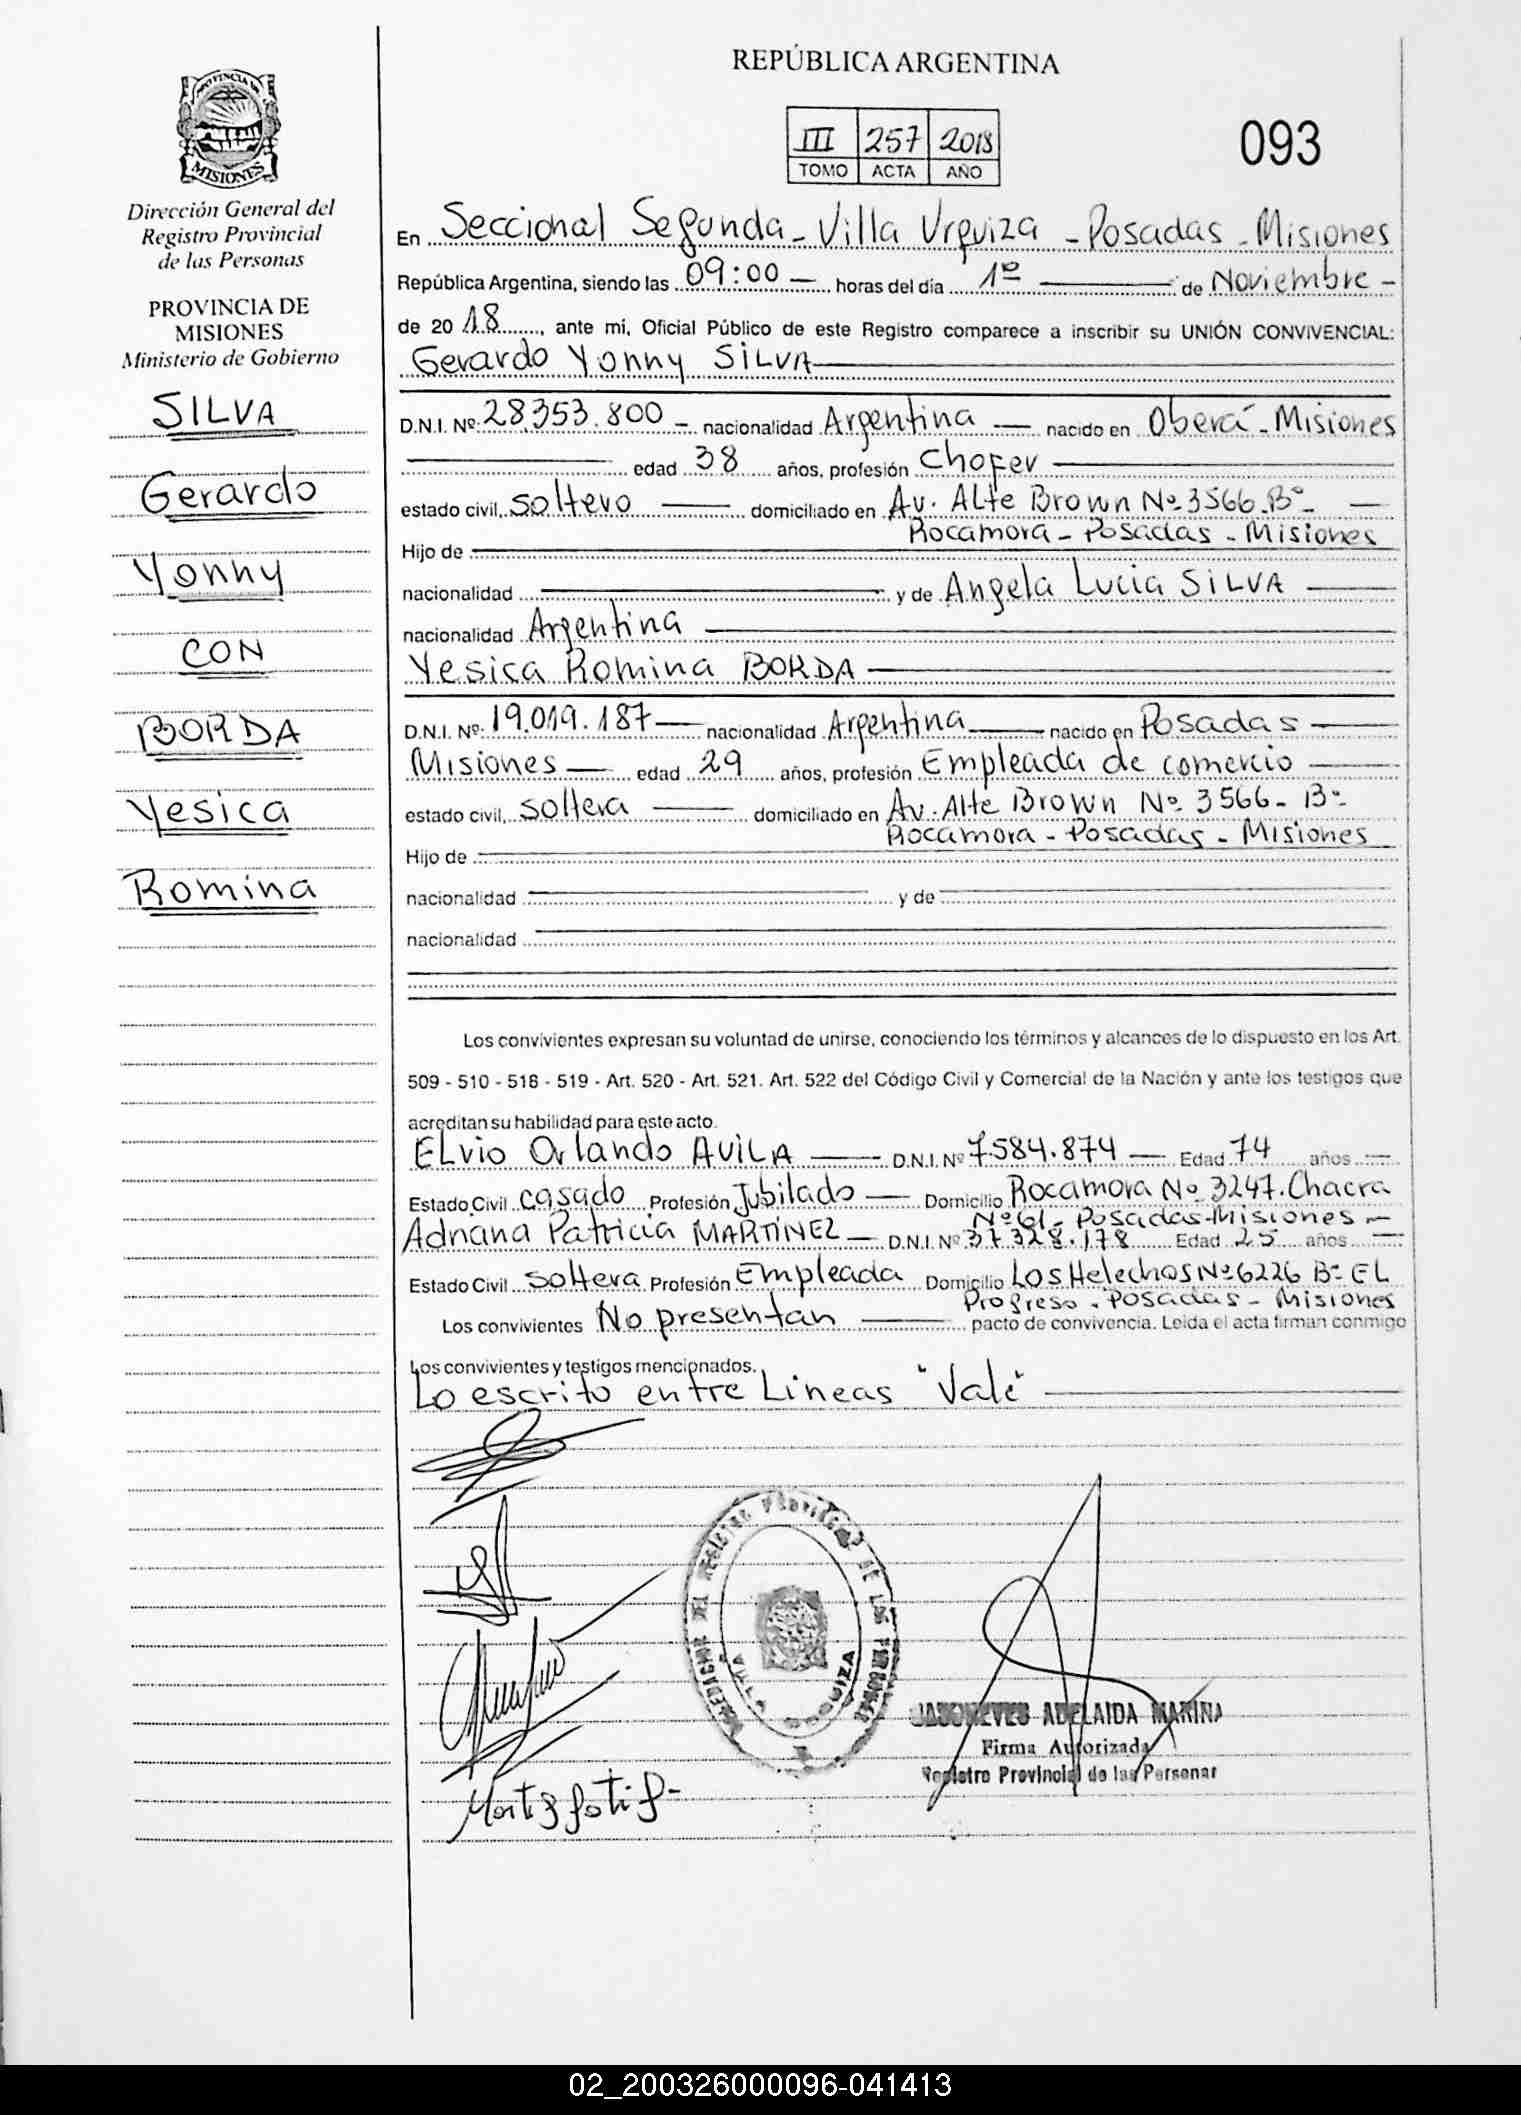 REPÚBLICA ARGENTINA
PROVINCIA DE
MISIONES
III 257 2018
TOMO ACTA AÑO
093
Dirección General del
Registro Provincial
de las Personas
PROVINCIA DE
MISIONES
Ministerio de Gobierno
SILVA
Gerardo
Yonny
CON
BORDA
Yesica
Romina
En Seccional Segunda - Villa Urquiza - Posadas - Misiones
República Argentina, siendo las 09:00 — horas del día 1º — de Noviembre -
de 2018, ante mi, Oficial Público de este Registro comparece a inscribir su UNIÓN CONVIVENCIAL:
Gerardo Yonny SILVA
D.N.I. Nº: 28.353.800 - nacionalidad Argentina — nacido en Oberá - Misiones
edad 38 años, profesión Chofer
estado civil, soltero — domiciliado en Av. Alte Brown Nº 3566. Bº -
Rocamora - Posadas - Misiones
Hijo de
nacionalidad — y de Angela Lucia SILVA
nacionalidad Argentina
Yesica Romina BORDA
D.N.I. Nº: 19.019.187 — nacionalidad Argentina — nacido en Posadas
Misiones — edad 29 años, profesión Empleada de comercio
estado civil, soltera — domiciliado en Av. Alte Brown Nº 3566 - Bº
Rocamora - Posadas - Misiones
Hijo de
nacionalidad — y de
nacionalidad
Los convivientes expresan su voluntad de unirse, conociendo los términos y alcances de lo dispuesto en los Art.
509 - 510 - 518 - 519 - Art. 520 - Art. 521. Art. 522 del Código Civil y Comercial de la Nación y ante los testigos que
acreditan su habilidad para este acto.
ELvio Orlando AVILA — D.N.I. Nº 7.584.874 — Edad 74 años —
Estado Civil casado Profesión Jubilado — Domicilio Rocamora Nº 3247. Chacra
Nº 61 - Posadas - Misiones -
Adriana Patricia MARTINEZ — D.N.I. Nº 37.328.178 Edad 25 años —
Estado Civil soltera Profesión Empleada Domicilio Los Helechos Nº 6226 Bº EL
Progreso - Posadas - Misiones
Los convivientes No presentan — pacto de convivencia. Leida el acta firman conmigo
Los convivientes y testigos mencionados.
Lo escrito entre Lineas "Vale"
DEL REGISTRO PROVINCIAL DE LAS PERSONAS
VILLA URQUIZA
ADELAIDA MARINA
Firma Autorizada
Registro Provincial de las Personas
02_200326000096-041413